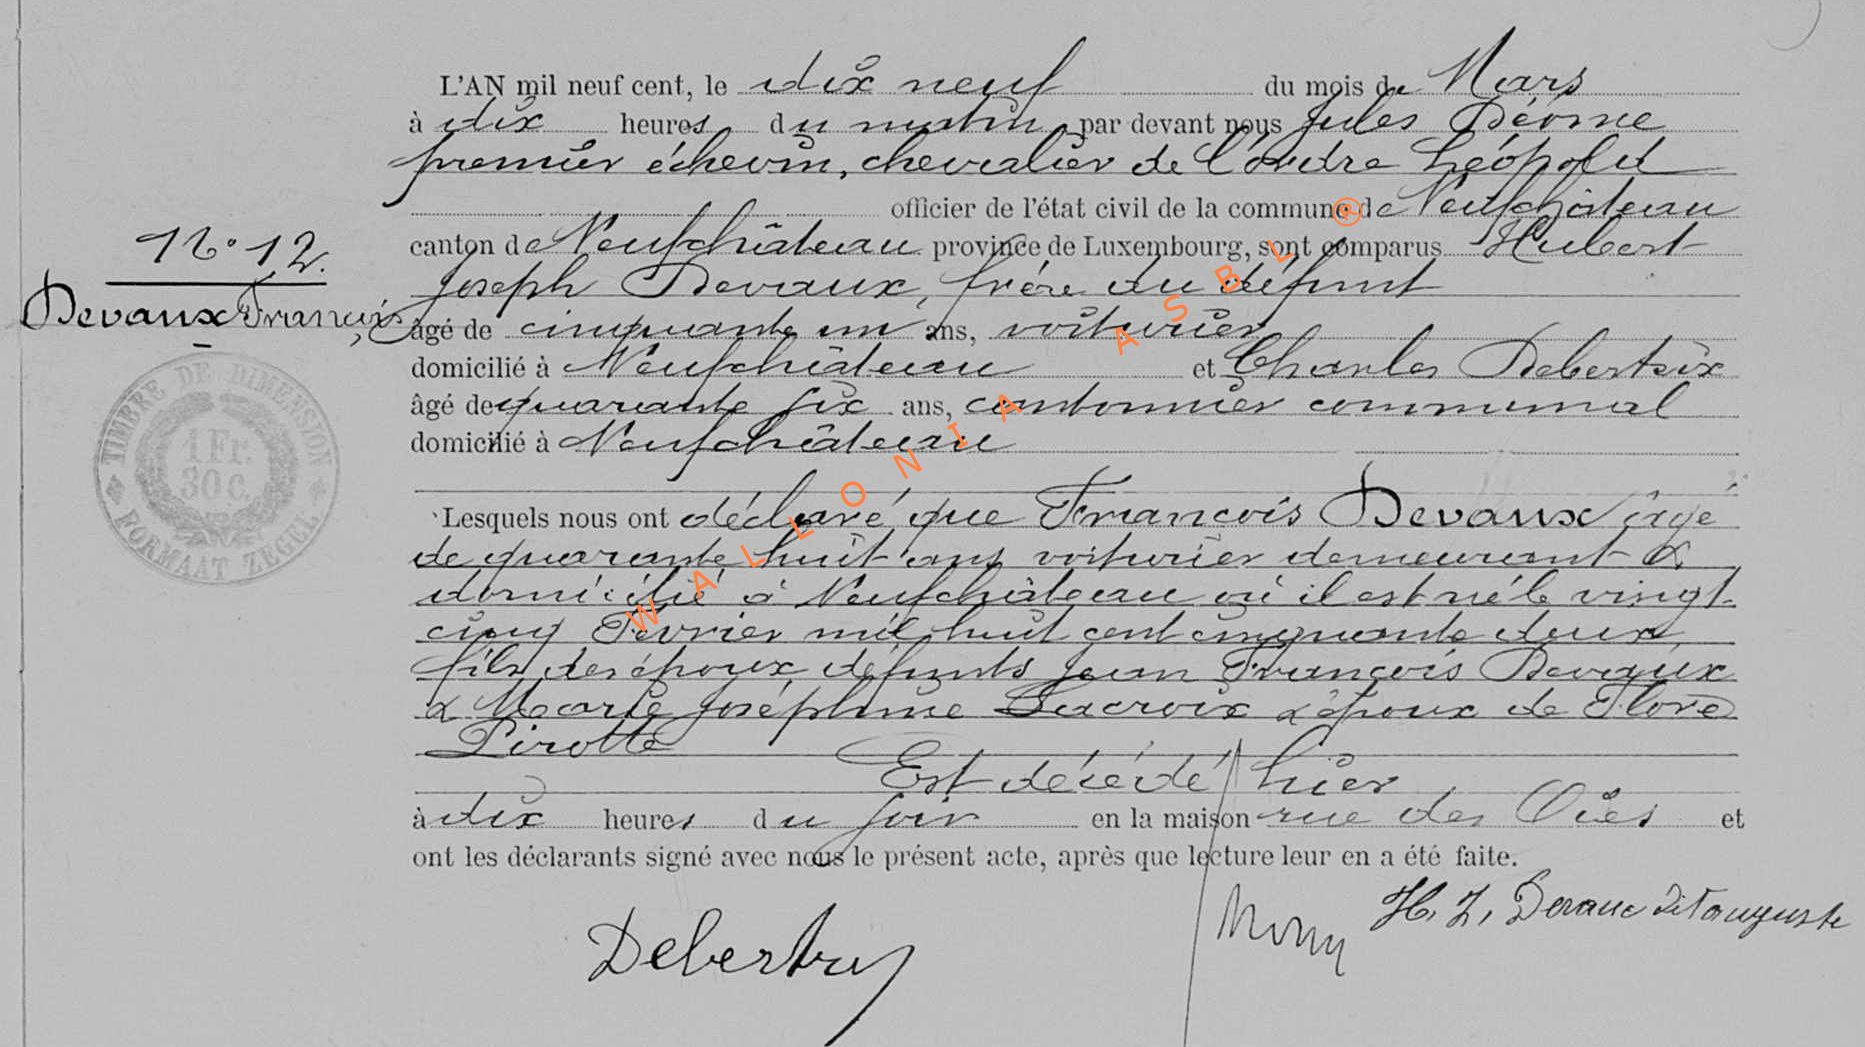 L'AN mil neuf cent, le dix neuf du mois de Mars
à dix heures du matin par devant nous Jules Déome
premier échevin, chevalier de l'ordre Léopold
officier de l'état civil de la commune de Neufchâteau
N° 12.
canton de Neufchâteau province de Luxembourg, sont comparus Hubert
Joseph Devaux, frère du défunt
Devaux François
âgé de cinquante un ans, voiturier
domicilié à Neufchâteau et Charles
âgé de quarante six ans, cantonnier communal
domicilié à Neufchâteau
TIMBRE DE DIMENSION
1 Fr.
30 c.
FORMAAT ZEGEL
Lesquels nous ont déclaré que François Devaux âgé
de quarante huit ans voiturier demeurant &
domicilié à Neufchâteau où il est né le vingt-
cinq Février mil huit cent cinquante deux
fils des époux défunts Jean François Devaux
& Marie Joséphine Lacroix & époux de Flore
Pirotte
Est décédé hier
à dix heures du soir en la maison rue des Oies et
ont les déclarants signé avec nous le présent acte, après que lecture leur en a été faite.
H. J. Devaux dit auguste
WALLONIA ASBL ®